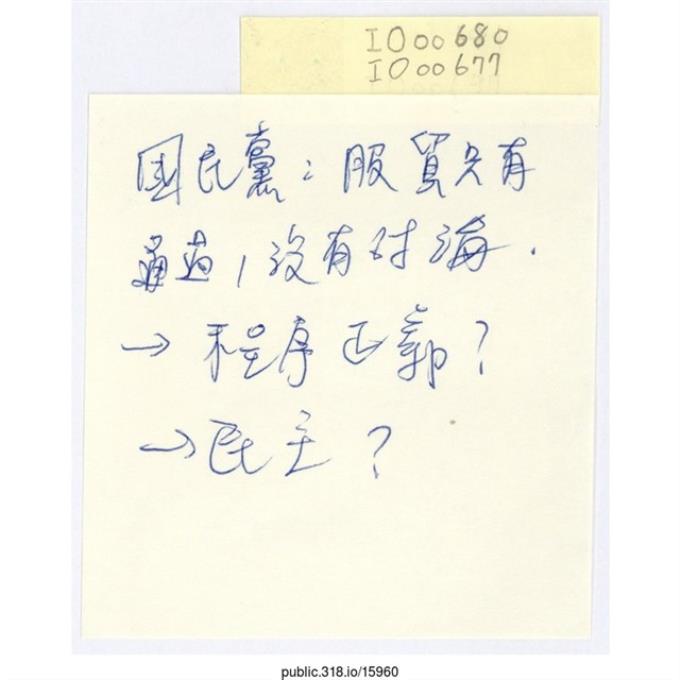 IO00680
IO00677
國民黨：服貿只有
通過，沒有討論．
→ 程序正義？
→民主？
public.318.io/15960